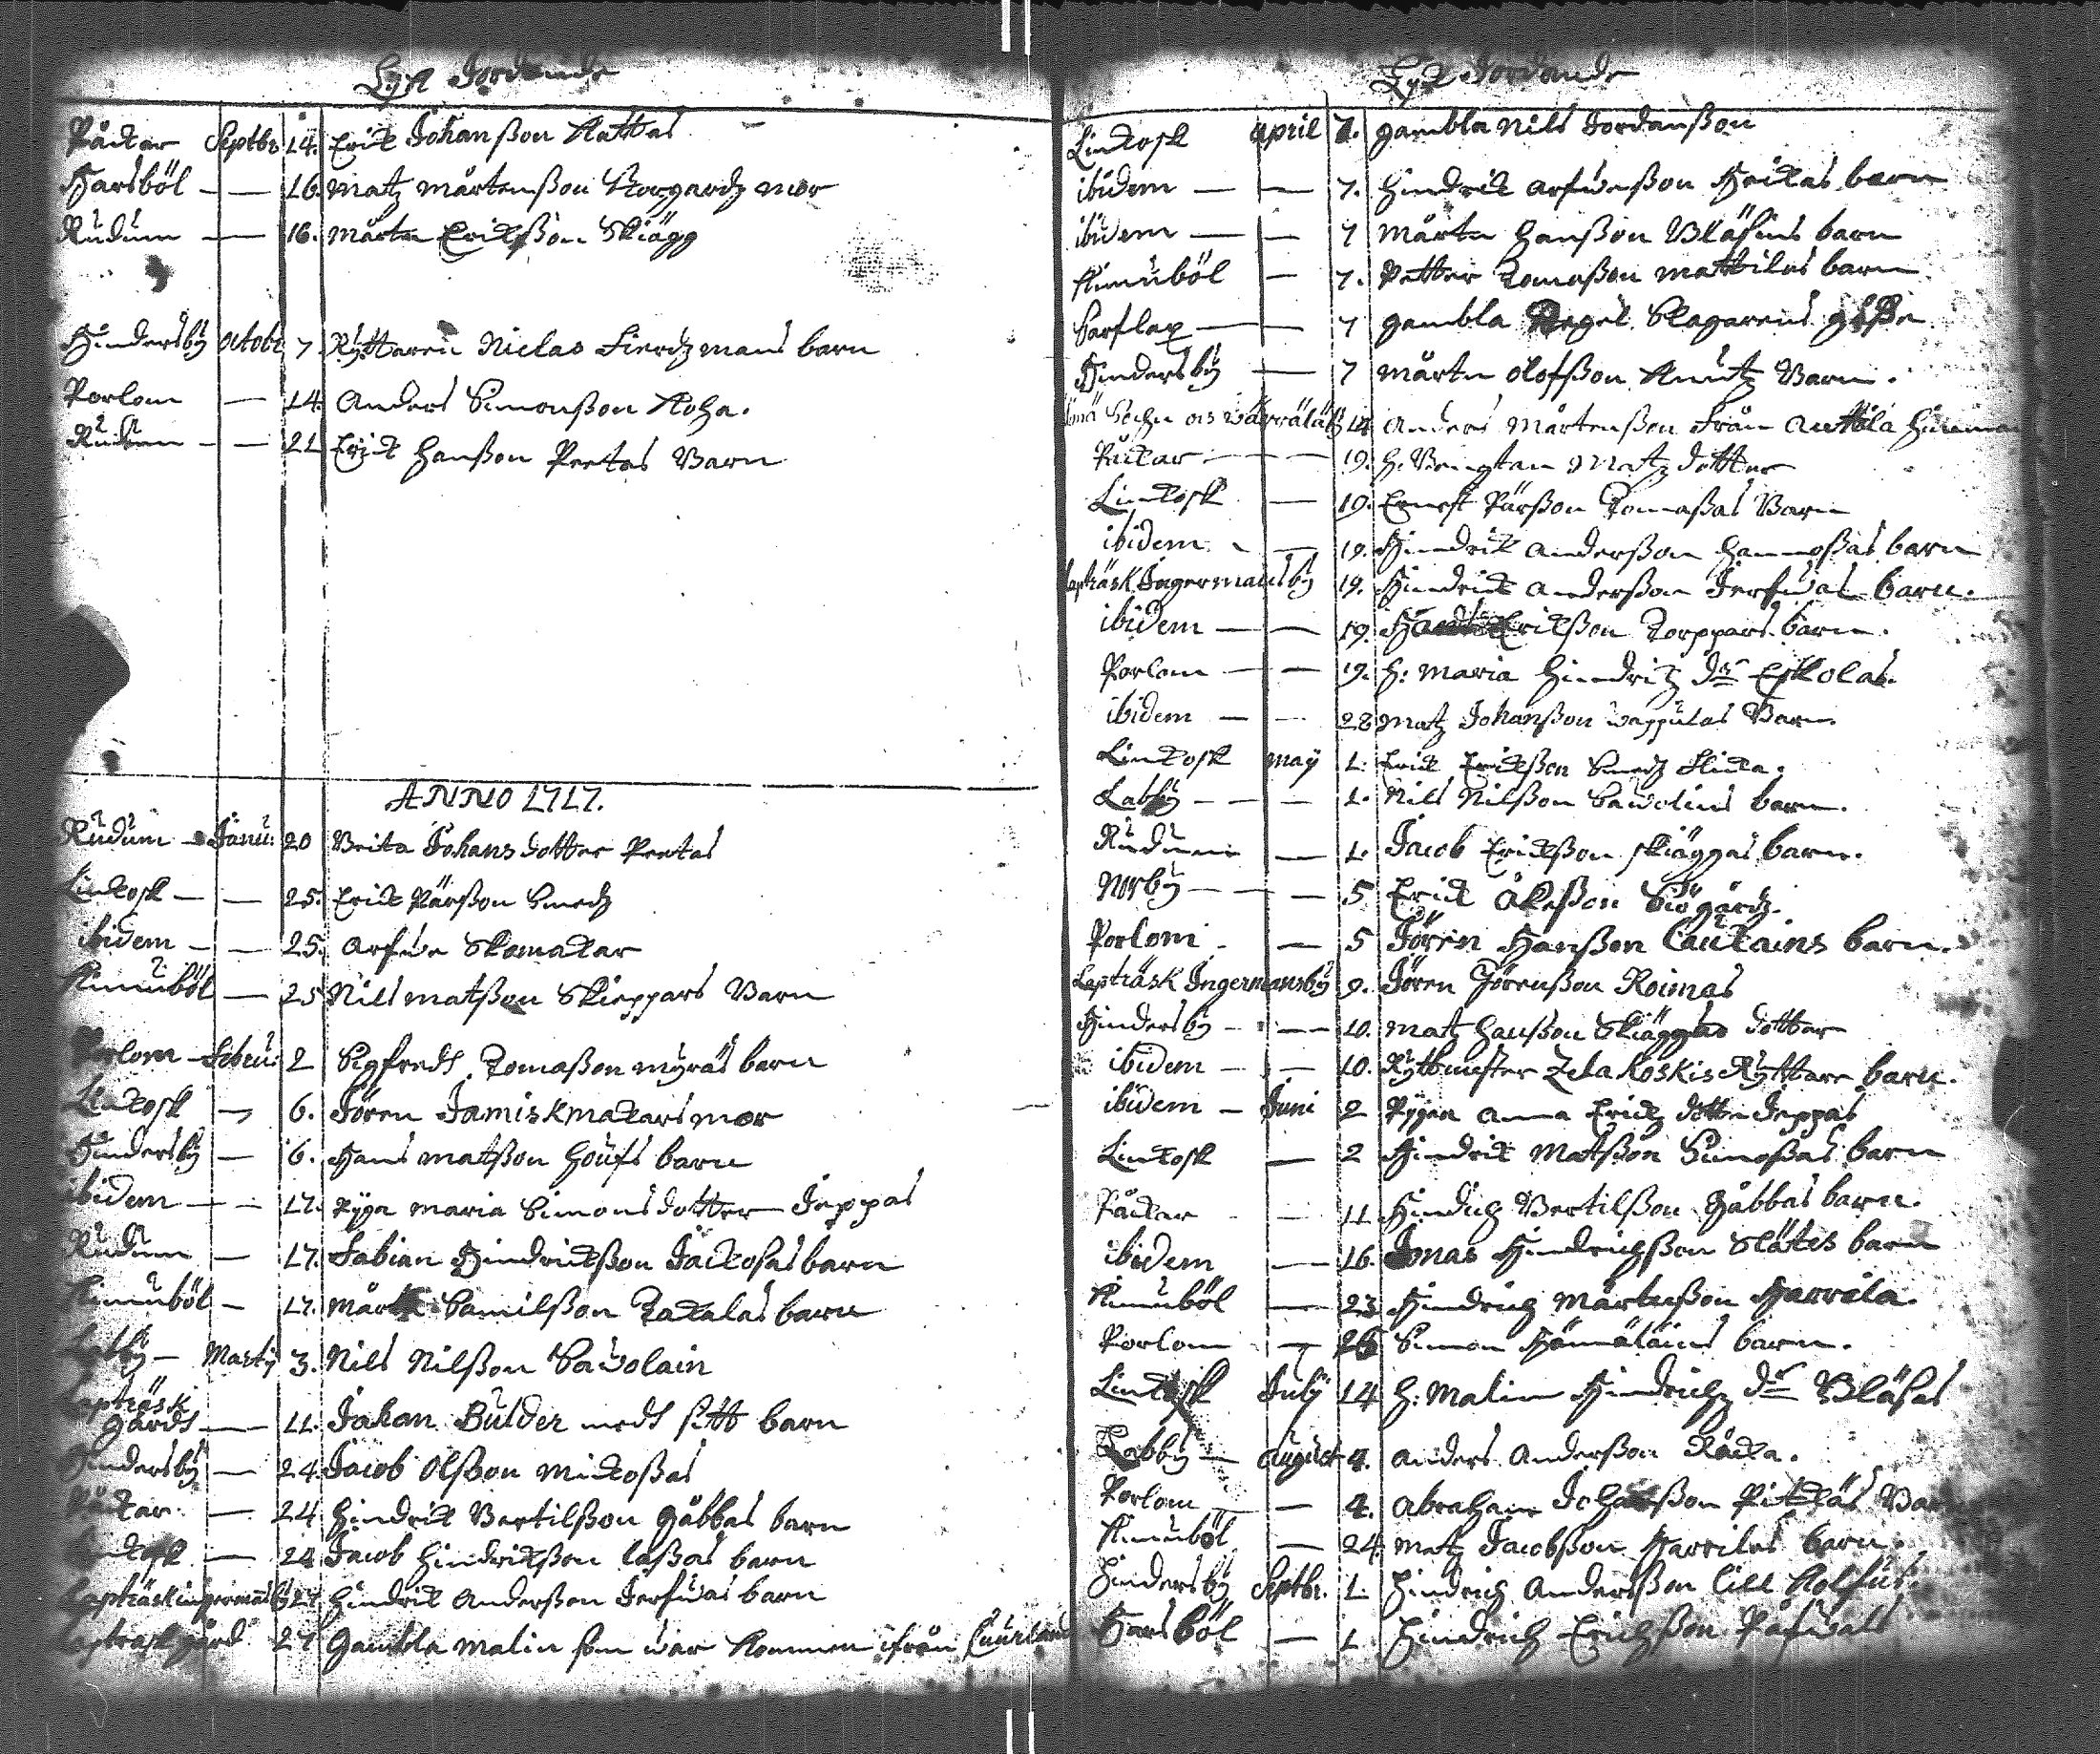 Lyst Jordande
Påckar Septbr 14. Erick Johanßon Kattas
Harsböl — — 16. Matz Mårtenßon Storgardz mor
Rudum — 16. Mårtn Erickßon Skiägg
Hindersby Octobr 7. Ryttaren Niclas Fierdzmans barn
Porlom — 14. Anders Simonßon Koha.
Rudum — — 21 Erick Hanßon Peetas Barn
ANNO 1717.
Rudum — Janu: 20 Brita Johans dotter Peetas
Linkosk — — 25. Erick Pärßon Smedz
ibidem — — 25. Arfwe Skomackar
Kimuböl — 25 Nils Matßon Skieppars Barn
Porlom — Febru: 2 Sigfredt Tomaßon Myräs barn
Linkosk — 6. Jören Jamiskmackars mor
Hindersby — 6. Hans Matßon Houfs barn
ibidem — — 17. Pyga Maria Simons dotter Jeppas
Rudum — 17. Fabian Hindrickßon Jackosas barn
Kimuböl — 17. Mårtn Samilßon Tackalas barn
Labby — Marty 3. Nils Nilßon Sawolain
Lapträsk
gårdt — 11. Johan Bulder medt sitt barn
Hindersby — 24. Jacob Olßon Mickoßas
Påckar — 24 Hindrick Bertilßon Gåbbas barn
Linkosk — 24 Jacob Hindrickßon Laßas barn
Lapträsk ingermansby 27. Hindrick Anderßon Jerfwas barn
Laptrask gård 27 Gambla Malin som war kommen ifrån Cuurland
Lyst Jordande
Linkosk April 7. gambla Nils Jordanßon
ibidem — — 7. Hindrick Arfweßon Heickas barn
ibidem — — 7 Mårtn Hanßon Bläsius barn
Kimuböl — 7. Petter Tomaßon Mattilas barn
Sarflax — — 7 gambla Slagarens
Hindersby — 7 Mårtn Olofßon Knutz Barn.
14 Anders Mårtenßon från Anttila
Påckar — — 19. H. Bengtan Matz dotter
Linkosk — 19. Ernest Pärßon Tomaßas Barn
ibidem — — 19. Hindrick Anderßon Hannoßas barn
Lapträsk Ingermansby 19. Hindrick Anderßon Jerfwas barn.
ibidem — — 19. Erickßon Torppars barn.
Porlom — — 19. H: Maria Hindrichz dr Eskolas.
ibidem — — 28 Matz Johanßon Wappulas Barn.
Linkosk May 1. Erick Erickßon Smedz flicka.
Labby — — — 1. Nils Nilßon Sawolins barn.
Rudum — 1. Jacob Erickßon Skiäggas barn.
Norby — — — 5 Erick Åkeßon Siögårdz.
Porlom — — 5 Jören Hanßon Caukains barn.
Lapträsk Ingermansby 9. Jören Jörenßon Roimas
Hindersby — — 10. Matz Hanßon Skiäggas dotter
ibidem — — 10. Ryttmester Zelakoskis Ryttare barn.
ibidem — Juni 2 Pygan Anna Erickz dotter Jeppas
Linkosk — 2 Hindrick Matßon Simoßas barn
Påckar — 11 Hindrich Bertilßon Gåbbas barn.
ibidem — 16. Jonas Hindrichßon Slätis barn
Kimuböl — 23 Hindrich Mårtenßon Harrila.
Porlom — 26 Simon Hämäläins barn.
Linkosk July 14 H: Malin Hindrichz dr Bläsas
Labby — August 4. Anders Anderßon Råcka.
Porlom — 4. Abraham Johanßon Pitkäs Barn
Kimuböl — 24 Matz Jacobßon Harrilas barn.
Hindersby Septbr. 1. Hindrich Anderßon Lill Rolfus.
Harsböl — 1 Hindrich Erichßon Påfwals